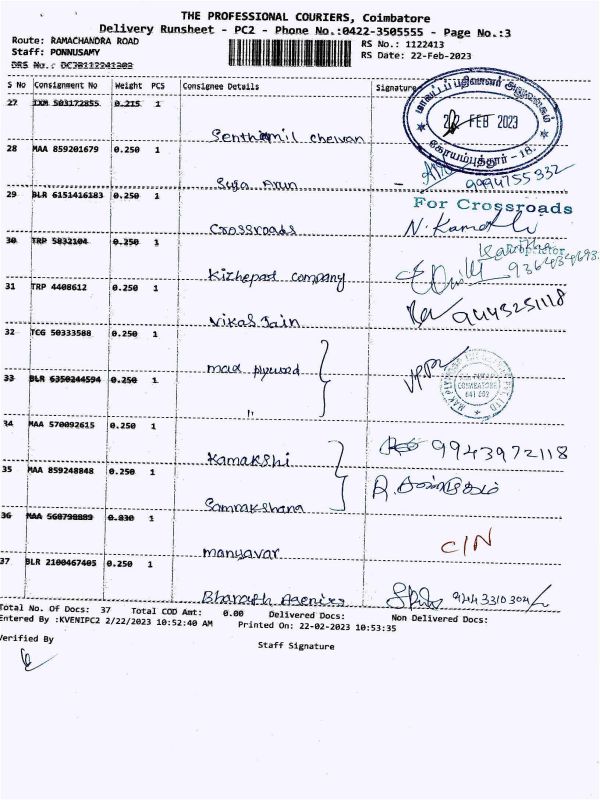 THE PROFESSIONAL COURIERS, Coimbatore
Delivery Runsheet - PC2 - Phone No.:0422-3505555 - Page No.:3
Route: RAMACHANDRA ROAD RS No.: 1122413
Staff: PONNUSAMY RS Date: 22-Feb-2023
DRS No.:
S No Consignment No Weight PCS Consignee Details Signature
மாவட்டப் பதிவாளர் அலுவலகம்
22 FEB 2023
கோயம்புத்தூர் - 18.
27 IXM 503172855 0.215 1
Senthamil Chelvan
28 MAA 859201679 0.250 1
Suja Arun 9994755932
29 BLR 6151416183 0.250 1
For Crossroads
Crossroads N. Kamath
Proprietor
30 TRP 5832104 0.250 1
Kizhepart Company
31 TRP 4408612 0.250 1
Vikas Jain 9443251118
32 TCG 50333588 0.250 1
mad plywood
COIMBATORE
641 002
33 BLR 6350244594 0.250 1
"
34 MAA 570092615 0.250 1
Kamakshi 9943972118
35 MAA 859248848 0.250 1
Samrakshana
36 MAA 568798889 0.030 1
manyavar C/N
37 BLR 2100467405 0.250 1
Bharath Agenies 9443310304
Total No. Of Docs: 37 Total COD Amt: 0.00 Delivered Docs: Non Delivered Docs:
Entered By :KVENIPC2 2/22/2023 10:52:40 AM Printed On: 22-02-2023 10:53:35
Verified By Staff Signature